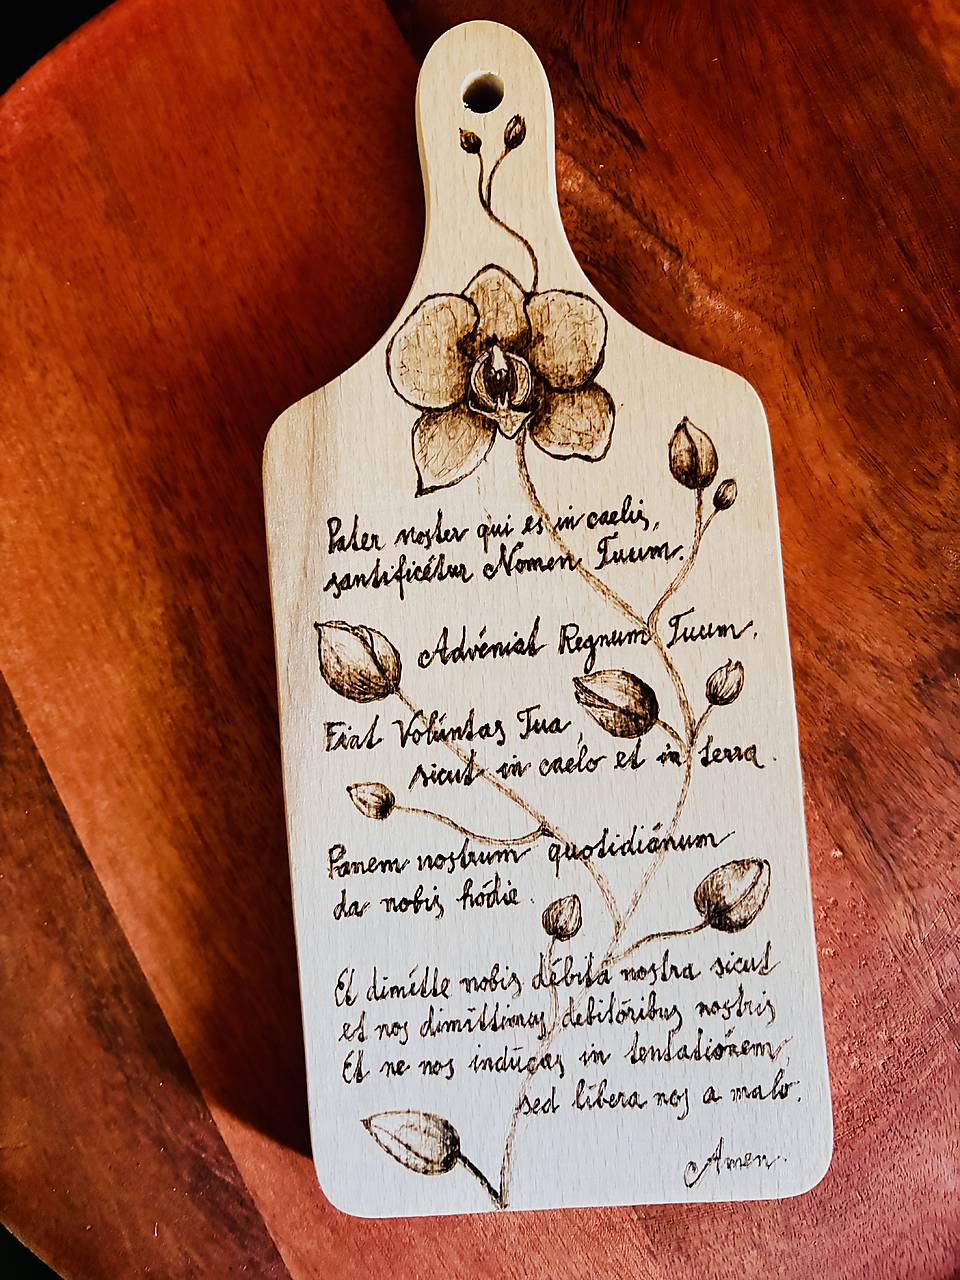 Pater noster qui es in caelis,
santificétur Nomen Tuum.
Advéniat Regnum Tuum.
Fiat Volúntas Tua,
sicut in caelo et in terra.
Panem nostrum quotidiánum
da nobis hódie.
Et dimítte nobis débita nostra sicut
et nos dimíttimus debitóribus nostris
Et ne nos indúcas in tentatiónem,
sed líbera nos a malo.
Amen.